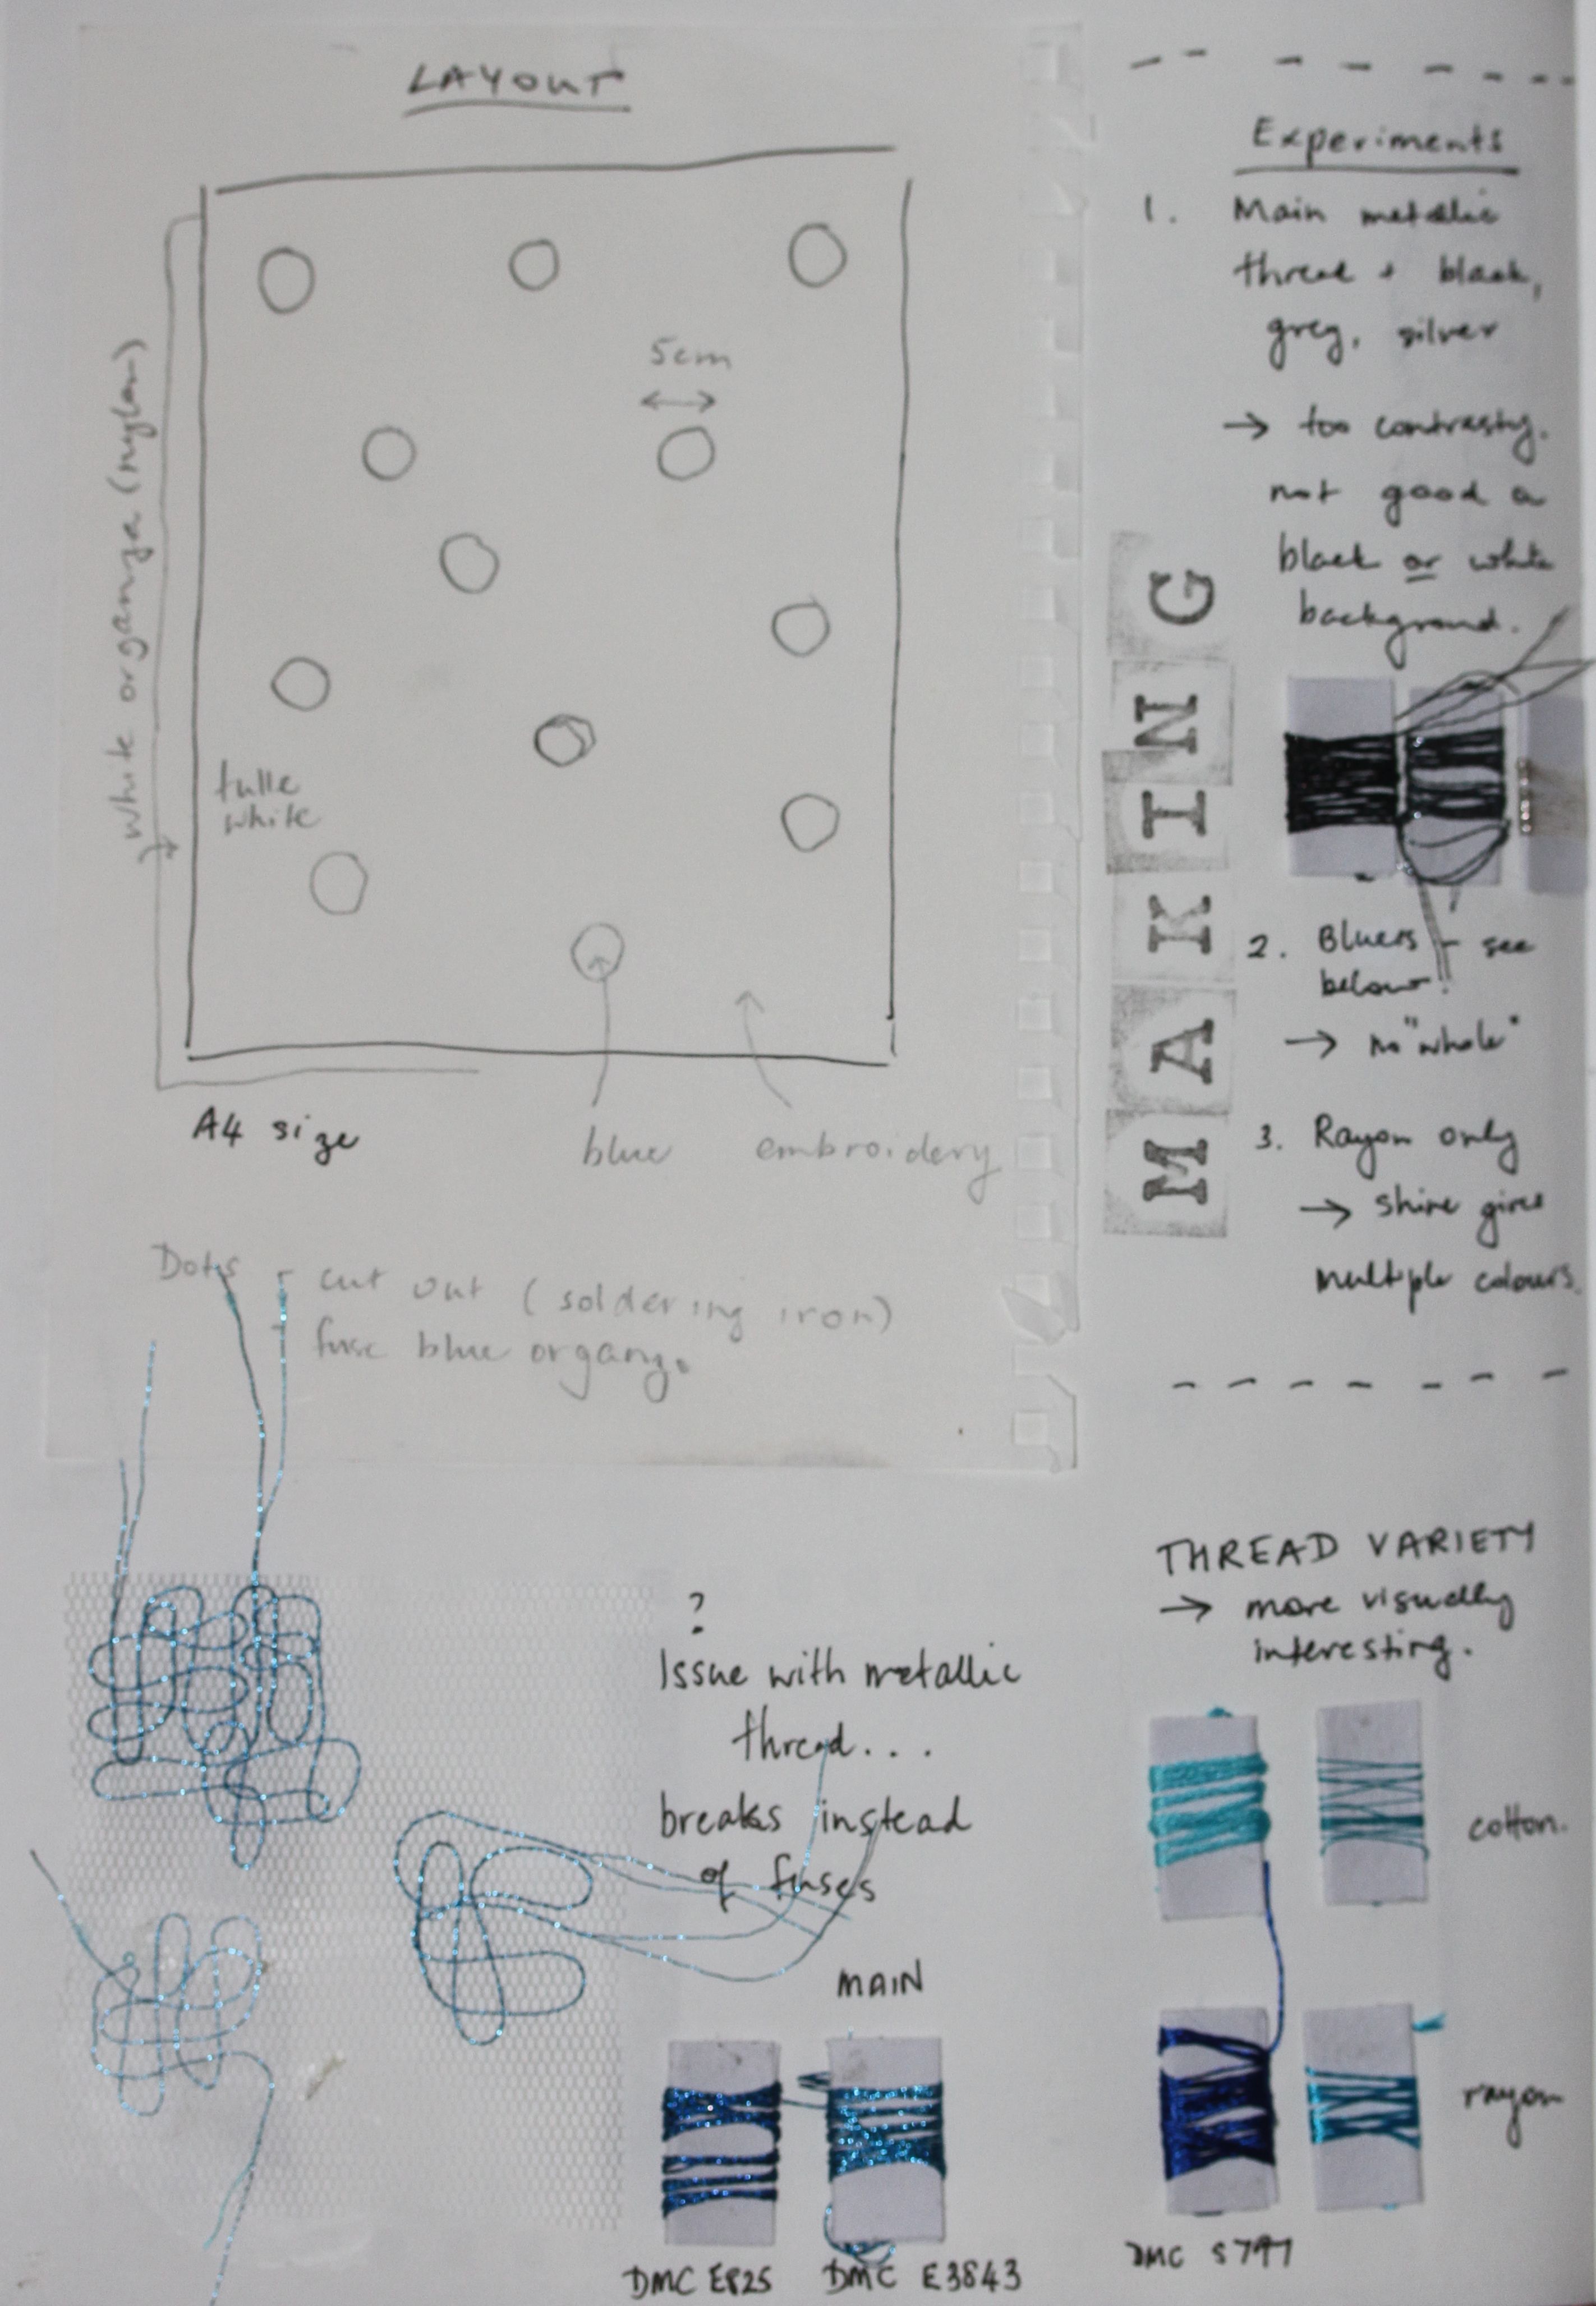 LAYOUT
5cm
white organza (nylon)
tulle
white
A4 size
blue
embroidery
Dots - cut out (soldering iron)
fuse blue organza
MAKING
Experiments
1. Main metallic
thread + black,
grey, silver
→ too contrasty.
not good on
black or white
background.
2. Bluers - see
below.
→ no "whole"
3. Rayon only
→ shine gives
multiple colours.
THREAD VARIETY
→ more visually
interesting.
cotton.
rayon
DMC S797
?
Issue with metallic
thread...
breaks instead
of fuses
MAIN
DMC E825
DMC E3843